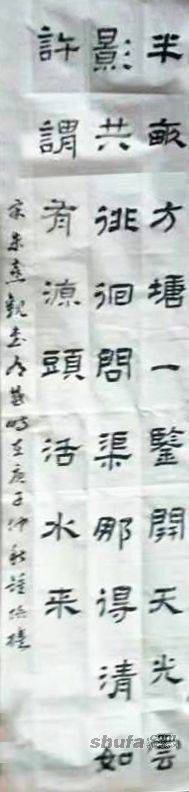 半畝方塘一鑒開天光雲
影共徘徊問渠那得清如
許謂有源頭活水来
宋朱熹觀書有感時在庚子仲秋
shufa